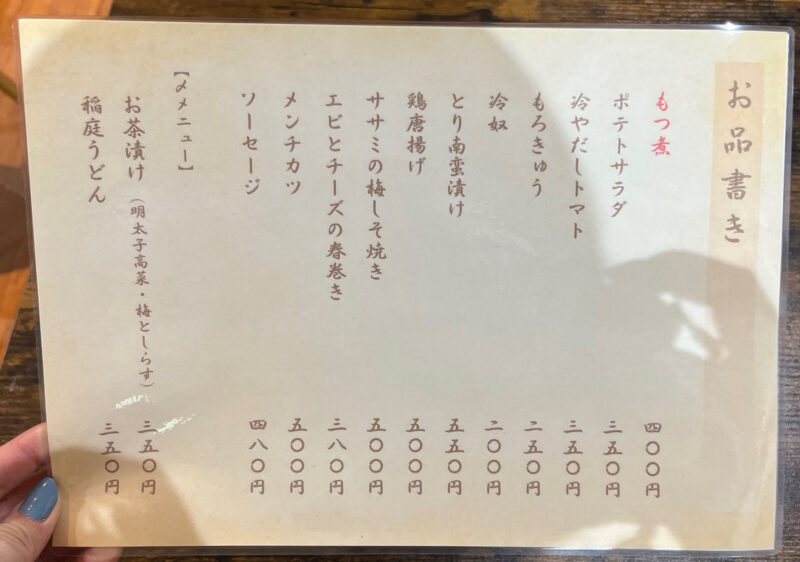 お品書き
もつ煮 四〇〇円
ポテトサラダ 三五〇円
冷やだしトマト 三五〇円
もろきゅう 二五〇円
冷奴 二〇〇円
とり南蛮漬け 五五〇円
鶏唐揚げ 五〇〇円
ササミの梅しそ焼き 五〇〇円
エビとチーズの春巻き 三八〇円
メンチカツ 五〇〇円
ソーセージ 四八〇円
【〆メニュー】
お茶漬け（明太子高菜・梅としらす） 三五〇円
稲庭うどん 三五〇円